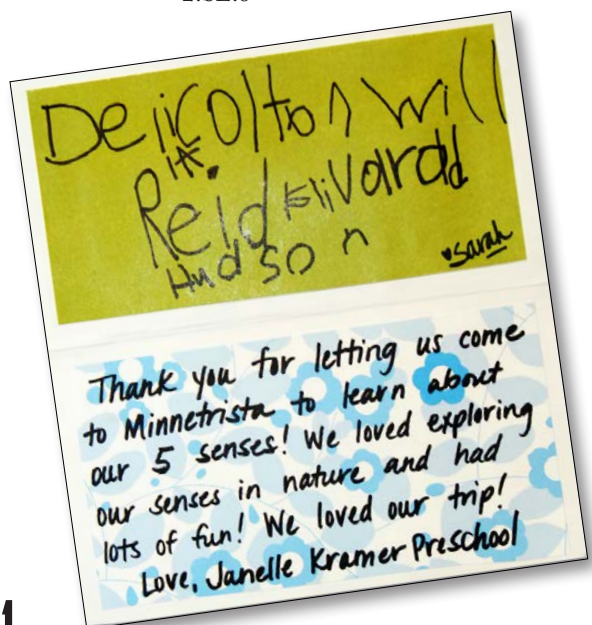 Colton Will
Reid
Hudson
♥sarah
Thank you for letting us come
to Minnetrista to learn about
our 5 senses! We loved exploring
our senses in nature and had
lots of fun! We loved our trip!
Love, Janelle Kramer Preschool